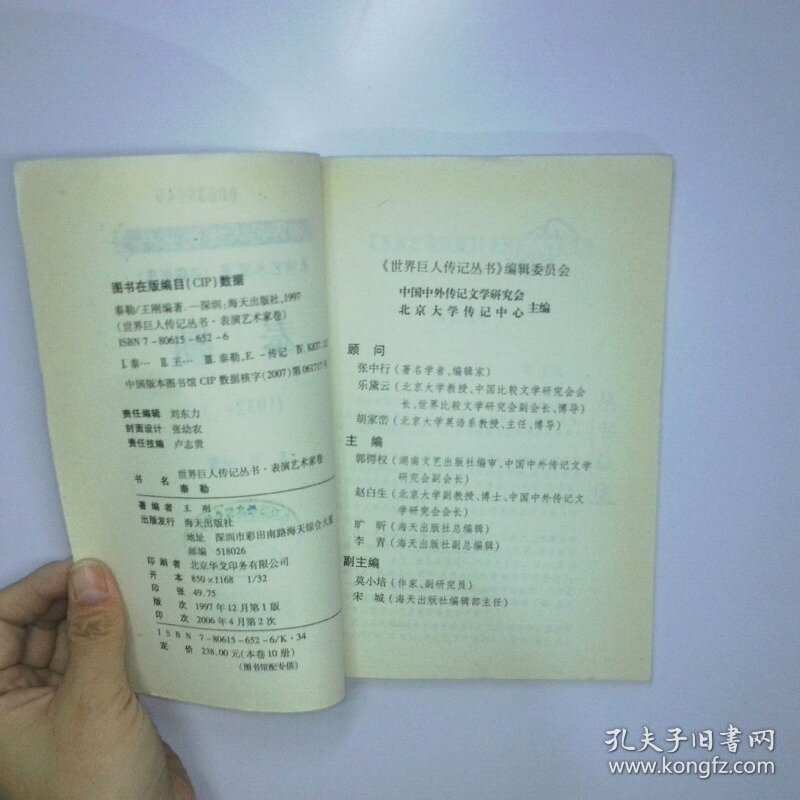 图书在版编目(CIP)数据
泰勒/王刚编著.—深圳:海天出版社,1997
(世界巨人传记丛书·表演艺术家卷)
ISBN7-80615-652-6
Ⅰ.泰… Ⅱ.王… Ⅲ.泰勒,E.-传记 Ⅳ.K837.
中国版本图书馆CIP数据核字(2007)第061717号
责任编辑 刘东力
封面设计 张幼农
责任技编 卢志贵
书 名 世界巨人传记丛书·表演艺术家卷
泰勒
著编者 王 刚
出版发行 海天出版社
地址 深圳市彩田南路海天综合大厦
邮编 518026
印刷者 北京华戈印务有限公司
开 本 850×1168 1/32
印 张 49.75
版 次 1997年12月第1版
印 次 2006年4月第2次
ISBN 7-80615-652-6/K·34
定 价 238.00元(本卷10册)
(图书馆配专供)
《世界巨人传记丛书》编辑委员会
中国中外传记文学研究会
北京大学传记中心 主编
顾 问
张中行(著名学者、编辑家)
乐黛云(北京大学教授、中国比较文学研究会会
长、世界比较文学研究会副会长、博导)
胡家峦(北京大学英语系教授、主任、博导)
主 编
郭锷权(湖南文艺出版社编审、中国中外传记文学
研究会副会长)
赵白生(北京大学副教授、博士、中国中外传记文
学研究会会长)
旷 昕(海天出版社总编辑)
李 青(海天出版社副总编辑)
副主编
莫小培(作家、副研究员)
宋 城(海天出版社编辑部主任)
孔夫子旧书网
www.kongfz.com